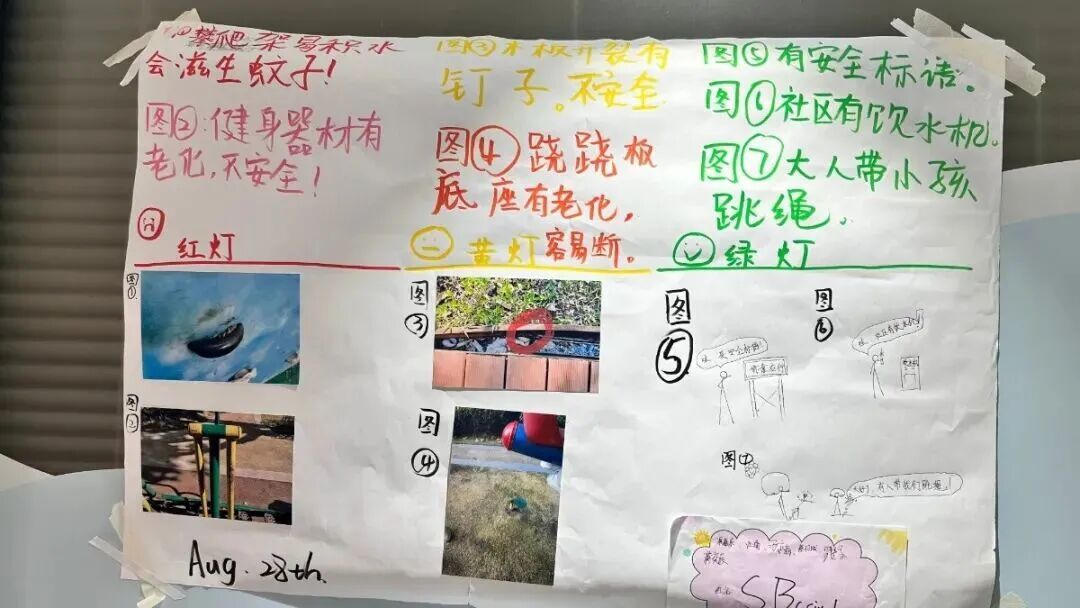 攀爬架易积水
会滋生蚊子!
图②:健身器材有
老化,不安全!
红灯
图①
图2
Aug. 28th.
图③木板开裂有
钉子。不安全
图④跷跷板
底座有老化,
容易断。
黄灯
图③
图④
图⑤有安全标语。
图⑥社区有饮水机。
图⑦大人带小孩
跳绳.
绿灯
图⑤
图⑥
图⑦